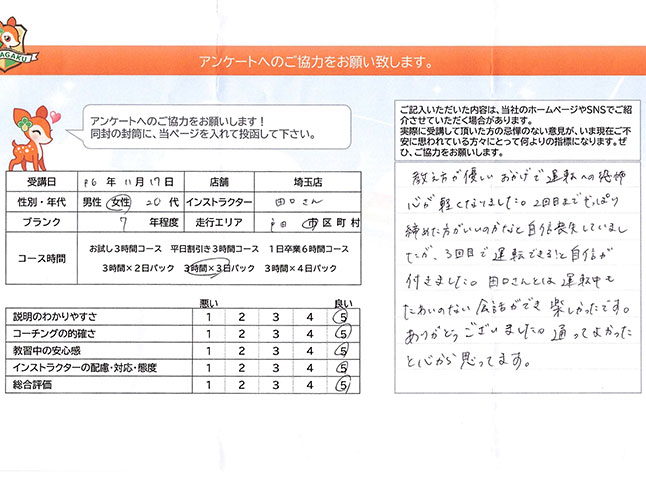 AGAKU
アンケートへのご協力をお願い致します。
アンケートへのご協力をお願いします!
同封の封筒に、当ページを入れて投函して下さい。
ご記入いただいた内容は、当社のホームページやSNSでご紹
介させていただく場合があります。
実際に受講して頂いた方の忌憚のない意見が、いま現在ご不
安に思われている方々にとって何よりの指標になります。ぜ
ひ、ご協力をお願いします。
受講日 R6 年 11 月 17 日 店舗 埼玉店
性別・年代 男性 女性 20 代 インストラクター 田口さん
ブランク 7 年程度 走行エリア 戸田 市区町村
コース時間
お試し3時間コース 平日割引き3時間コース 1日卒業6時間コース
3時間×2日パック 3時間×3日パック 3時間×4日パック
悪い 良い
説明のわかりやすさ 1 2 3 4 5
コーチングの的確さ 1 2 3 4 5
教習中の安心感 1 2 3 4 5
インストラクターの配慮・対応・態度 1 2 3 4 5
総合評価 1 2 3 4 5
教え方が優しいおかげで運転への恐怖
心が軽くなりました。2回目までやっぱり
締めた方がいいのかなと自信喪失していまし
たが、3回目で運転できる!と自信が
付きました。田口さんとは運転中も
たわいのない会話ができ楽しかったです。
ありがとうございました。通ってよかった
と心から思ってます。